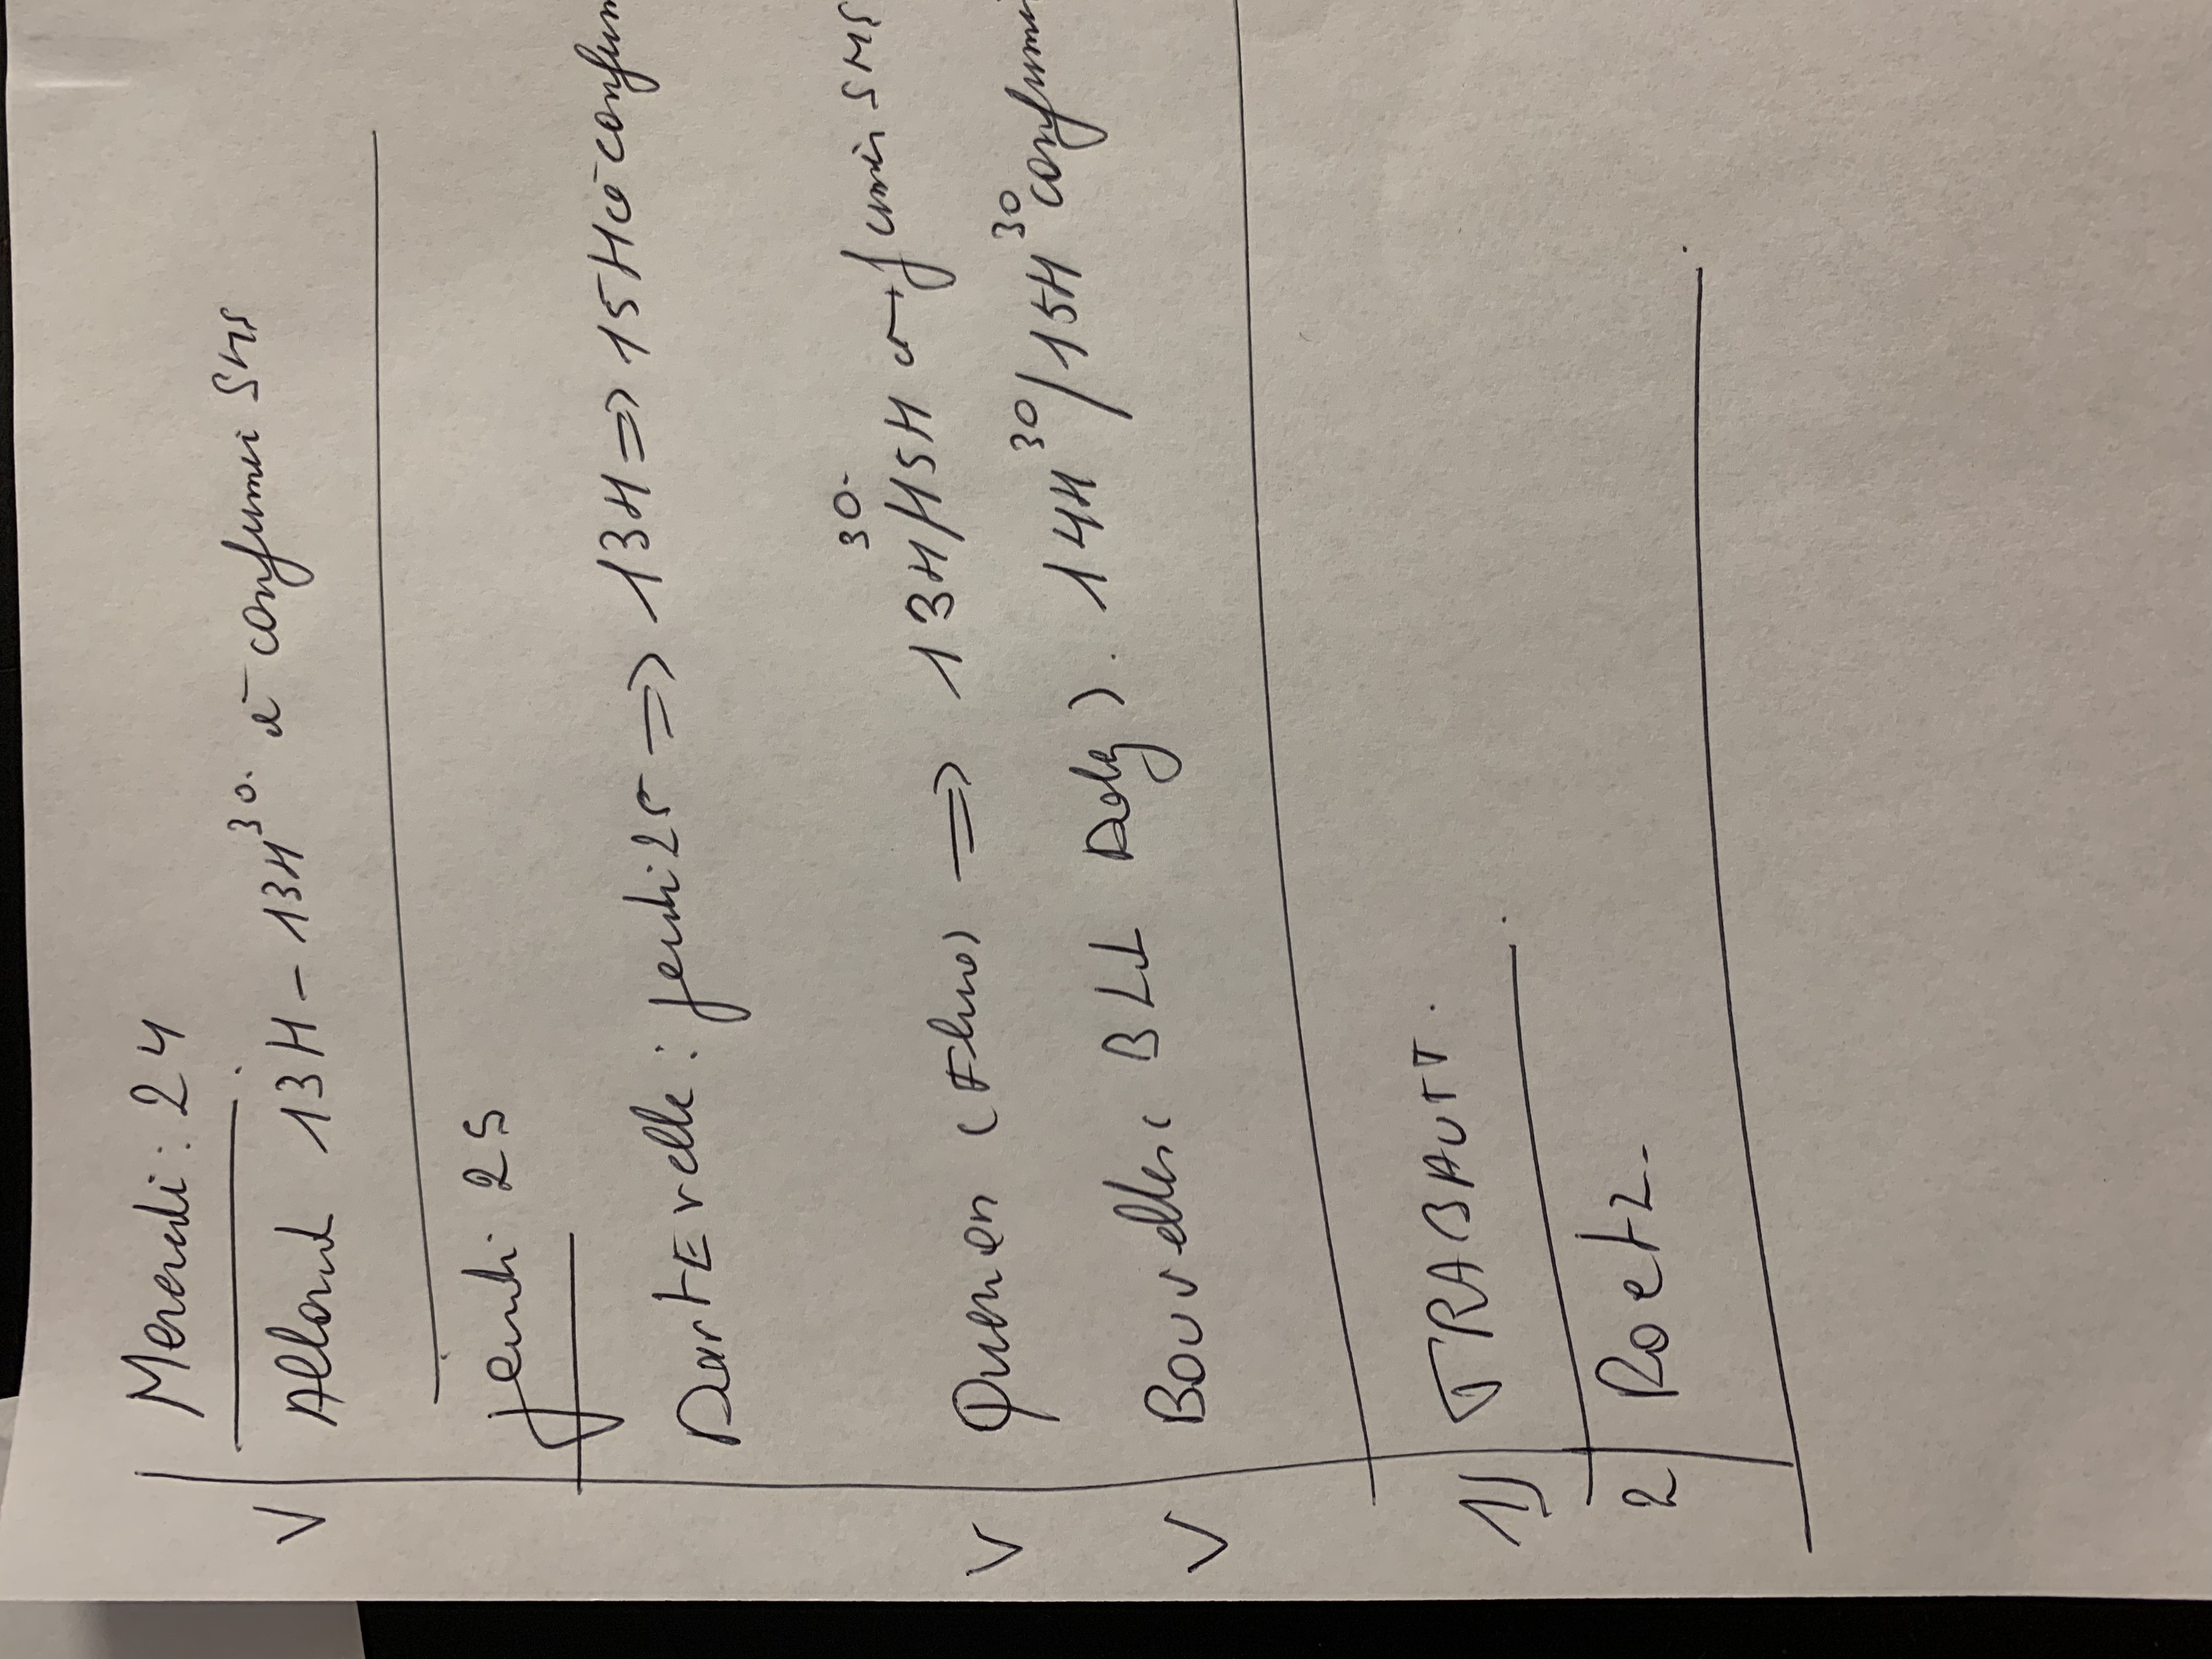 Mercredi : 24
V Allard 13H - 13H30. à confirmer SMS
Jeudi 25
DartEvelle : jeudi 25 => 13H => 15H à confirm
V Quenen ( => 13H/15H30. confirmer SMS
V Bouvelle 14H30/15H30 confirmer
1) TRABAUTT.
2 Roetz.